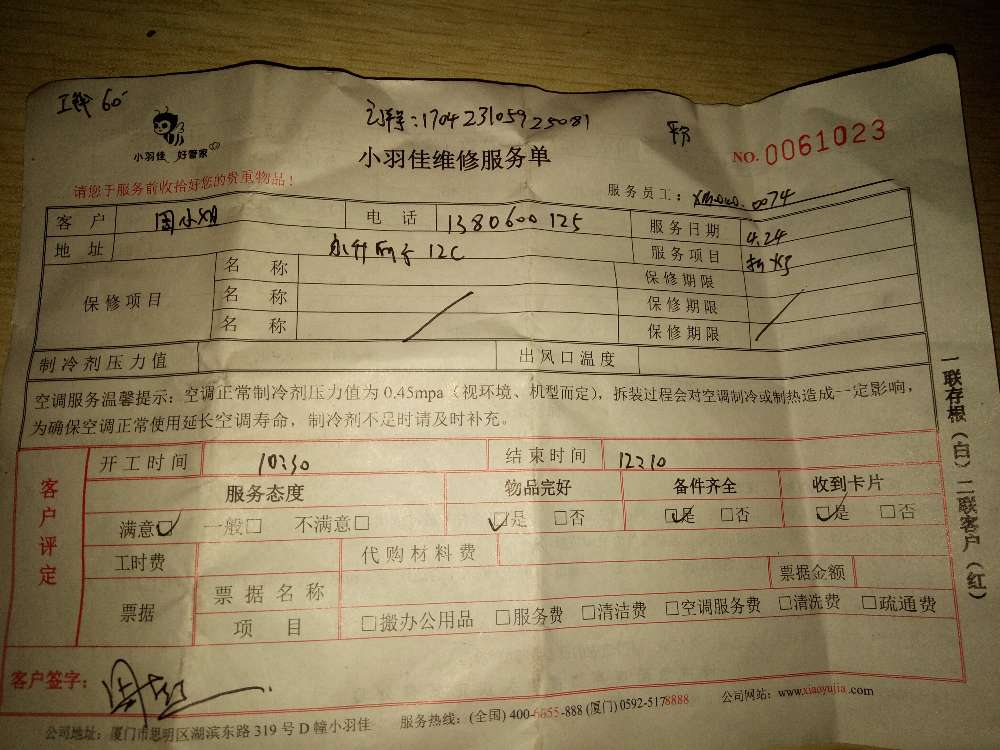 60
订单号:17042310592 5081
小羽佳 好管家
小羽佳维修服务单
NO. 0061023
请您于服务前收拾好您的贵重物品!
服务员工:
客户 周小姐 电话 1380600125 服务日期 4.24
地址 12C 服务项目
保修项目 名称 保修期限
名称 保修期限
名称 保修期限
制冷剂压力值 出风口温度
空调服务温馨提示:空调正常制冷剂压力值为0.45mpa(视环境、机型而定),拆装过程会对空调制冷或制热造成一定影响,
为确保空调正常使用延长空调寿命,制冷剂不足时请及时补充。
一联存根(白)二联客户(红)
客户评定
开工时间 10:30 结束时间 12:10
服务态度 物品完好 备件齐全 收到卡片
满意☑ 一般□ 不满意□ ☑是 □否 ☑是 □否 ☑是 □否
工时费 代购材料费
票据 票据名称 票据金额
项目 □搬办公用品 □服务费 □清洁费 □空调服务费 □清洗费 □疏通费
客户签字:
公司地址:厦门市思明区湖滨东路319号D幢小羽佳 服务热线:(全国)400-6855-888 (厦门)0592-5178888 公司网站:www.xiaoyujia.com